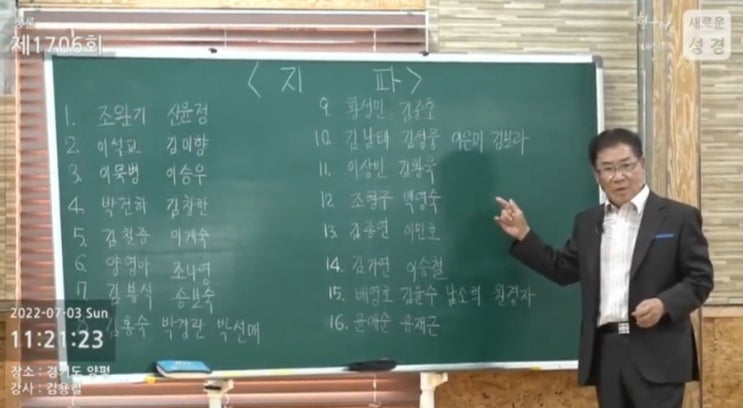 정론
제1706회
새로운
성경
< 지 파 >
1. 조완기 신윤정
2. 이석교 김미향
3. 이묵병 이승우
4. 박건하 김창한
5. 김철중 이계숙
6. 양영아 조나영
7. 김봉식 송보숙
김홍숙 박경란 박선애
9. 황성민 김준호
10. 김남태 김성웅 이은미 김보라
11. 이상민 김황욱
12 조형구 백영숙
13. 김종연 이민호
14. 김가연 이승철
15. 배영호 김윤수 남소희 원경자
16. 윤애순 유재근
2022-07-03 Sun
11:21:23
장소 : 경기도 양평
강사 : 김용철